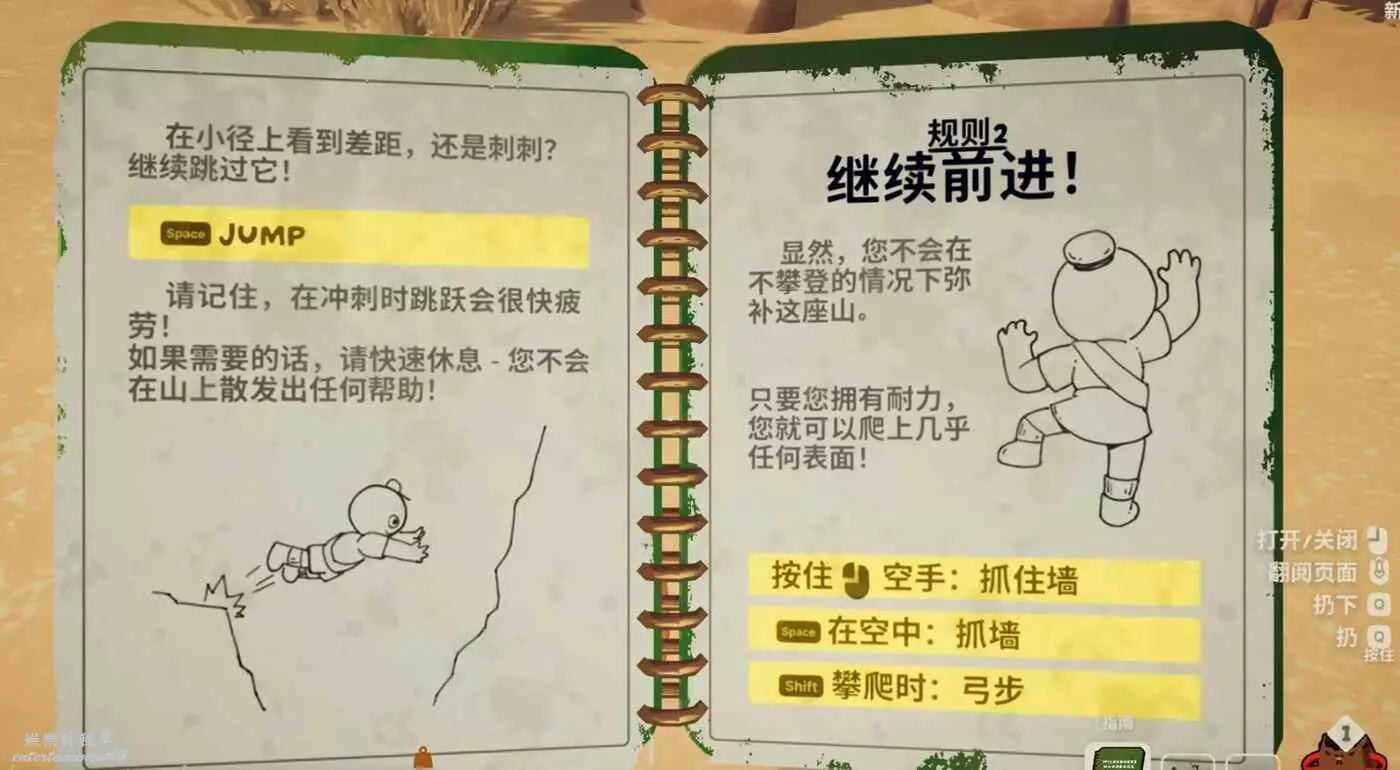 在小径上看到差距，还是刺刺？
继续跳过它！
Space JUMP
请记住，在冲刺时跳跃会很快疲
劳！
如果需要的话，请快速休息 - 您不会
在山上散发出任何帮助！
规则2、
继续前进！
显然，您不会在
不攀登的情况下弥
补这座山。
只要您拥有耐力，
您就可以爬上几乎
任何表面！
按住 空手：抓住墙
Space 在空中：抓墙
Shift 攀爬时：弓步
新
打开/关闭
翻阅页面
扔下 Q
扔 Q
按住
指南
1
WILDERNESS
HANDBOOK